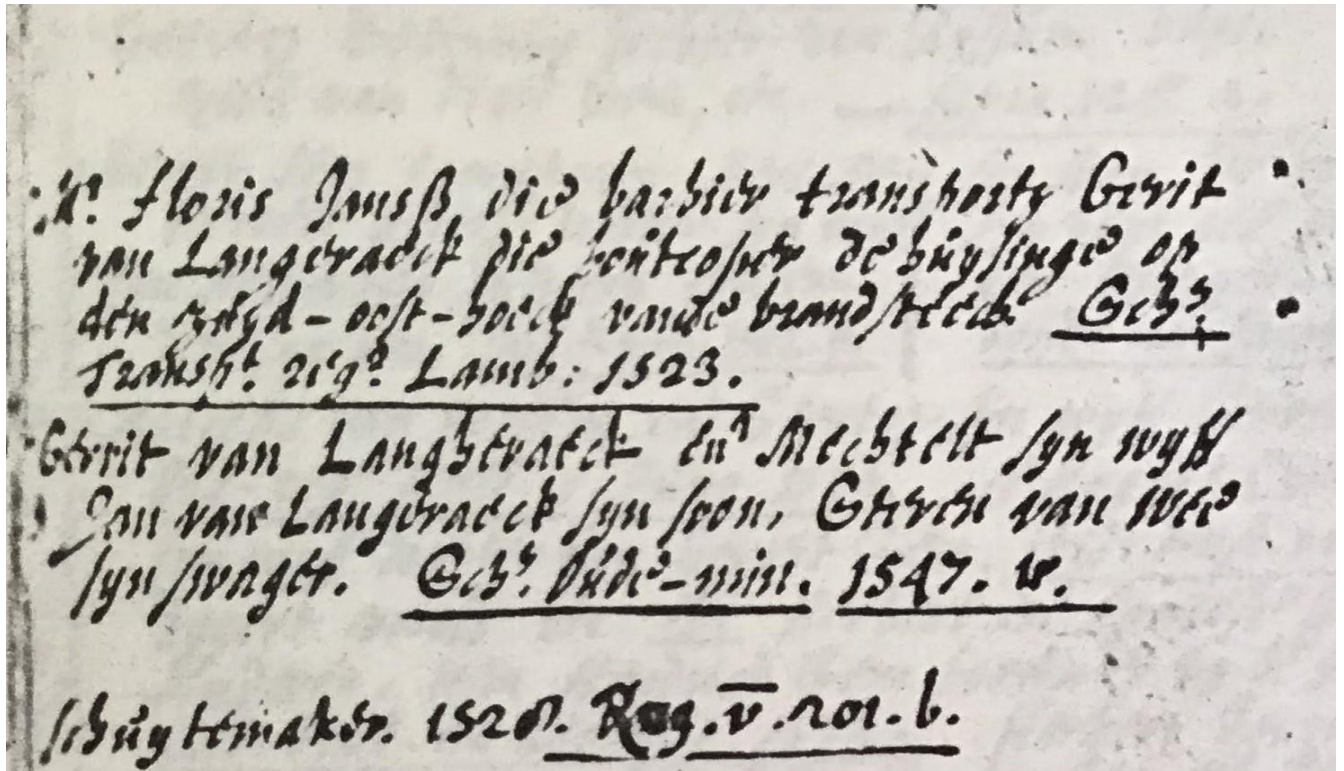 Mr. floris Jansß die barbier transporty Gerit
van Langeraeck die houtcoper de huysinge op
den zuyd-oost-hoeck vande brandsteech Sch.
Transpt. regr. Lamb: 1523.
Gerrit van Langheraeck en Mechtelt syn wyff
Jan van Langeraeck syn soon, Steven van wee
syn swager. Sch. Oude-min. 1547. w.
schuytemaker. 1528. Reg. v. 201. b.